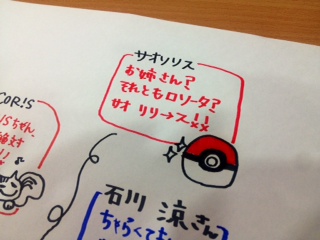 サオリリス
お姉さん?
それともロリータ?
サオ リリース!!
CORIS
ISちゃん、
絶対
!!
石川 涼さん
ちゃらくてお